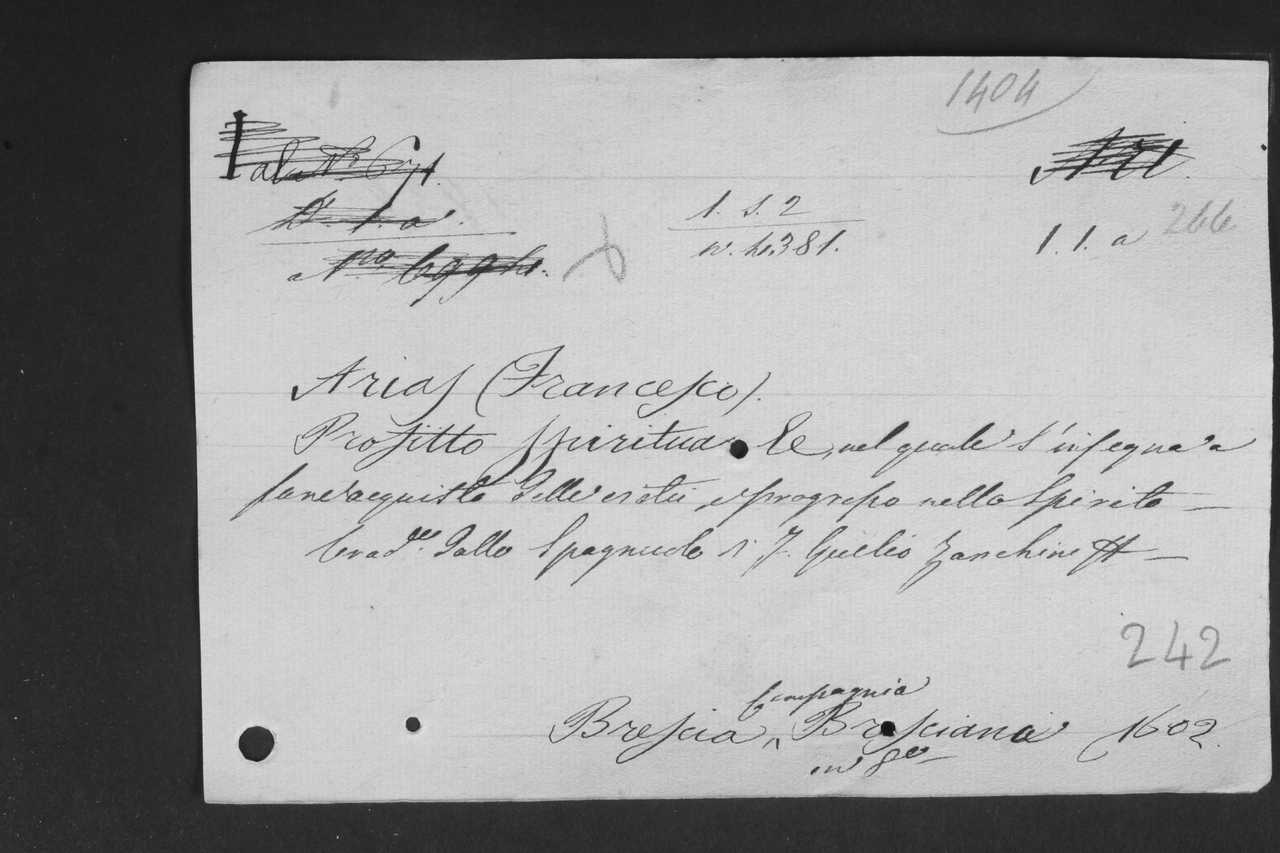 1404
1. 1. a 266
1. S. 2
n. 4381.
Arias (Francesco).
Profitto Spirituale, nel quale s'insegna a
fare acquisto delle virtù, e progresso nello Spirito —
Trad.e dallo Spagnuolo di F. Giulio Zanchini
242
Compagnia
Brescia, Bresciana 1602.
in 8o